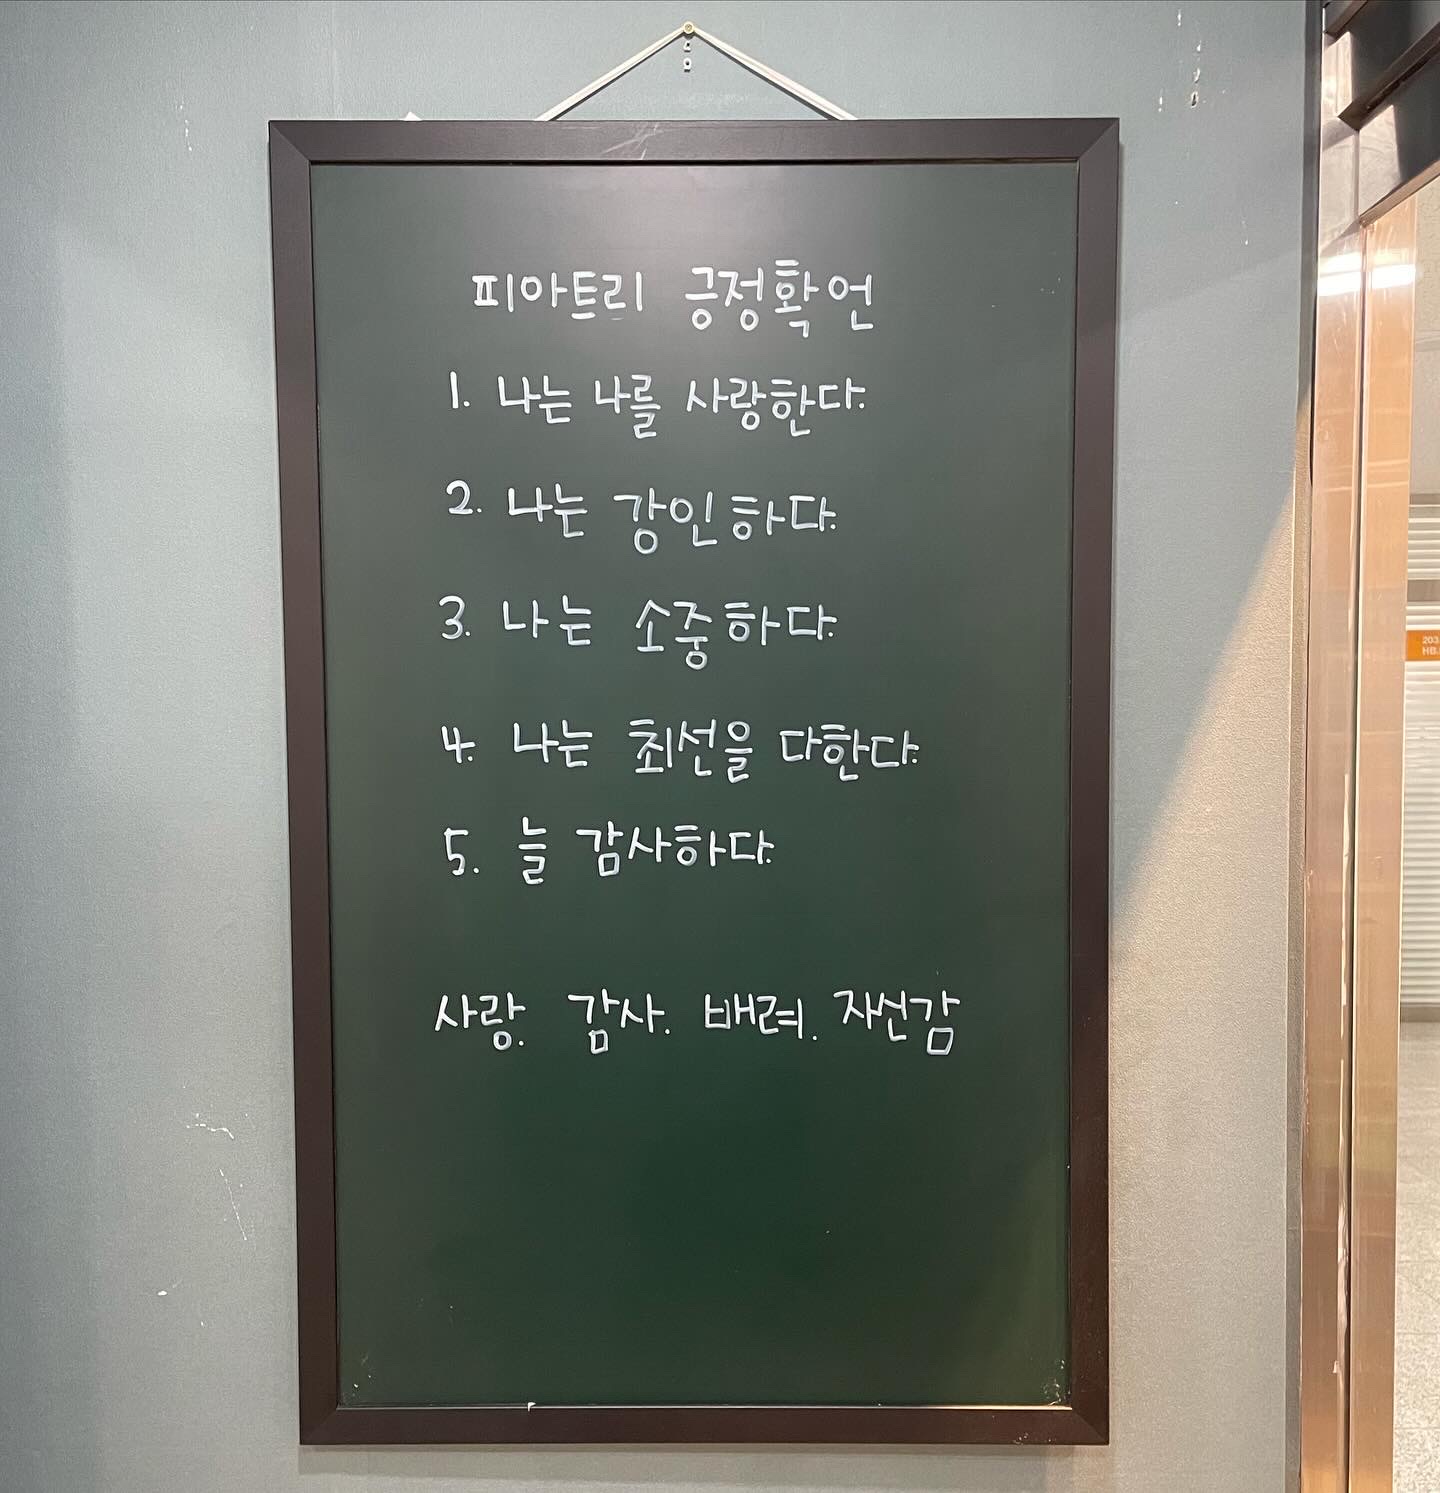 피아트리 긍정확언
1. 나는 나를 사랑한다.
2. 나는 강인하다.
3. 나는 소중하다.
4. 나는 최선을 다한다.
5. 늘 감사하다.
사랑. 감사. 배려. 자선감
203.
HB.